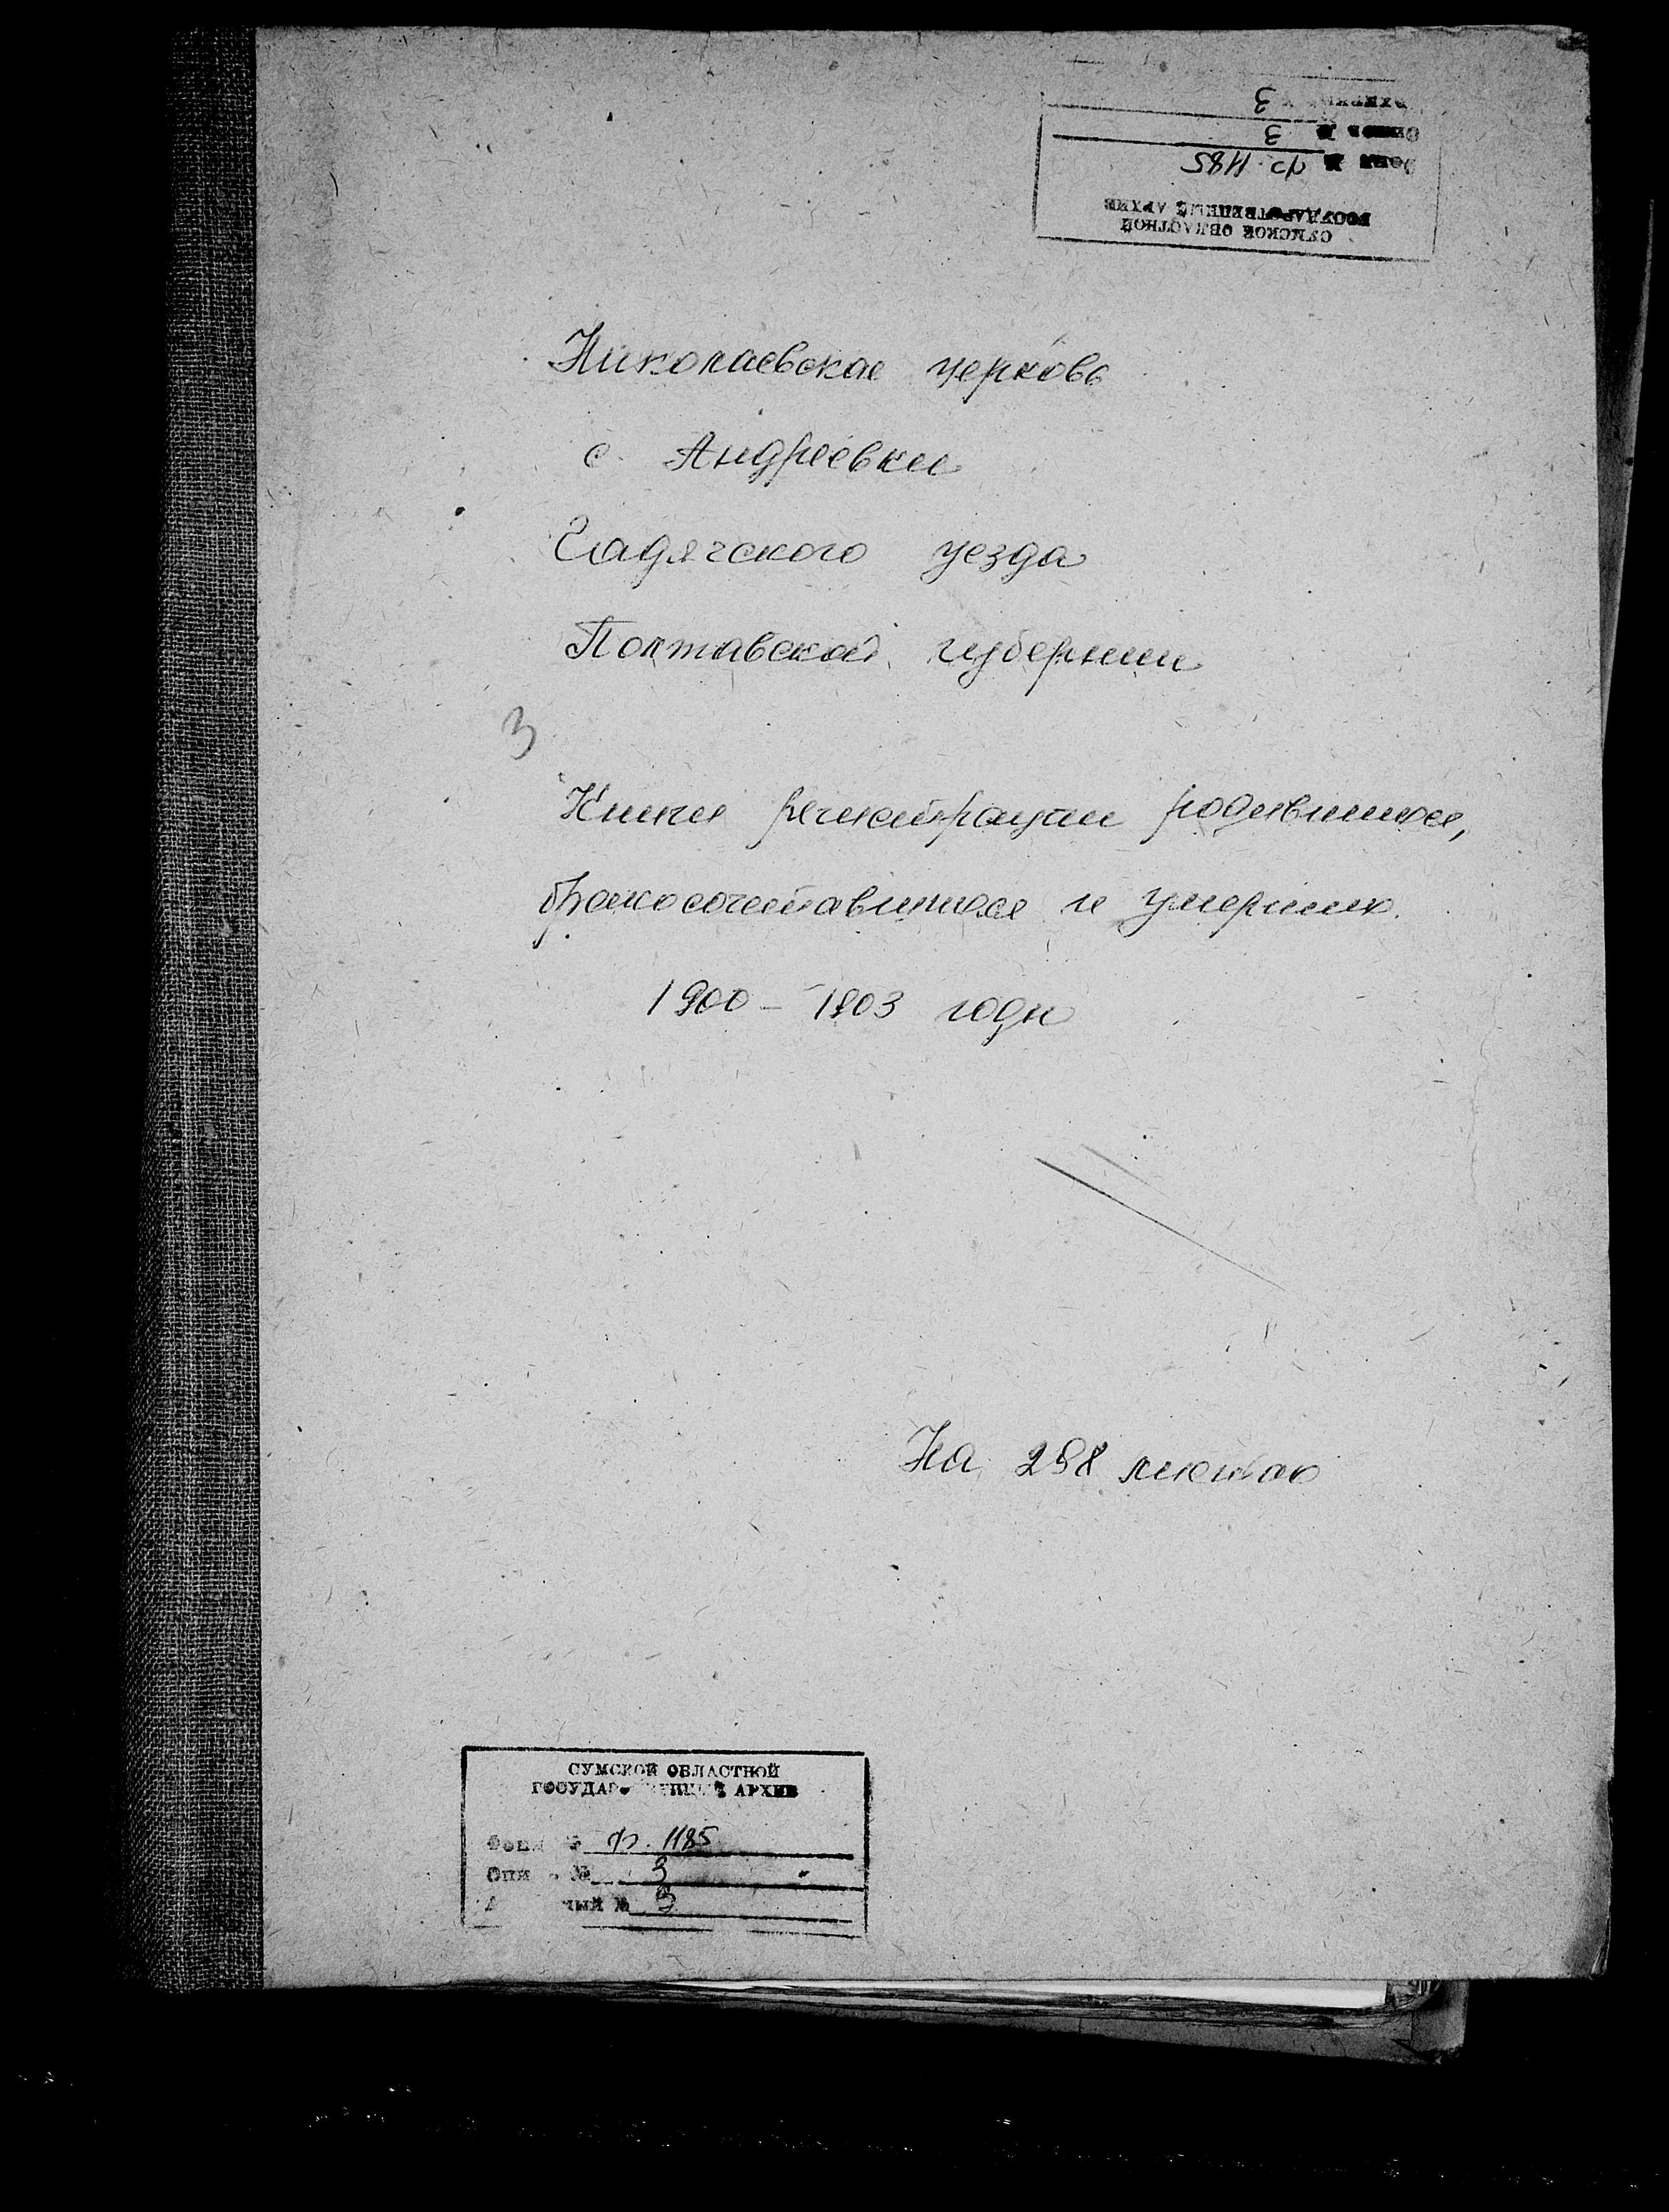 СУМСКОЙ ОБЛАСТНОЙ
ГОСУДАРСТВЕННЫЙ АРХИВ
Фонд № ф. 1185
Опись № 3
3
Николаевская церковь
с. Андреевки
Гадячского уезда
Полтавской губернии
3
Книги регистрации родившихся,
бракосочетавшихся и умерших.
1900 – 1903 годы
На 298 листах
СУМСКОЙ ОБЛАСТНОЙ
ГОСУДАРСТВЕННЫЙ АРХИВ
Фонд № ф. 1185
Опись № 3
№ 3